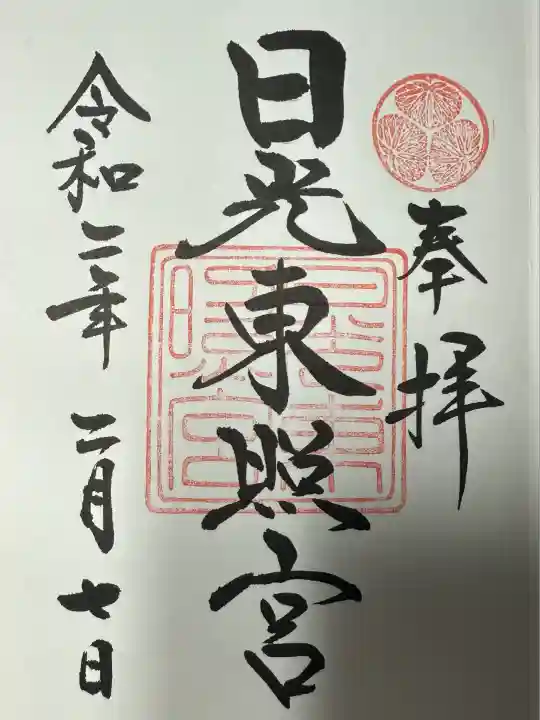 奉拝
日光東照宮
令和二年 二月 七日